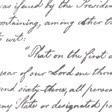 was issued by the Presiden
containing, among other t
to wit:
"That on the first d
year of our Lord one thous
and sixty-three, all person
any State or designated p